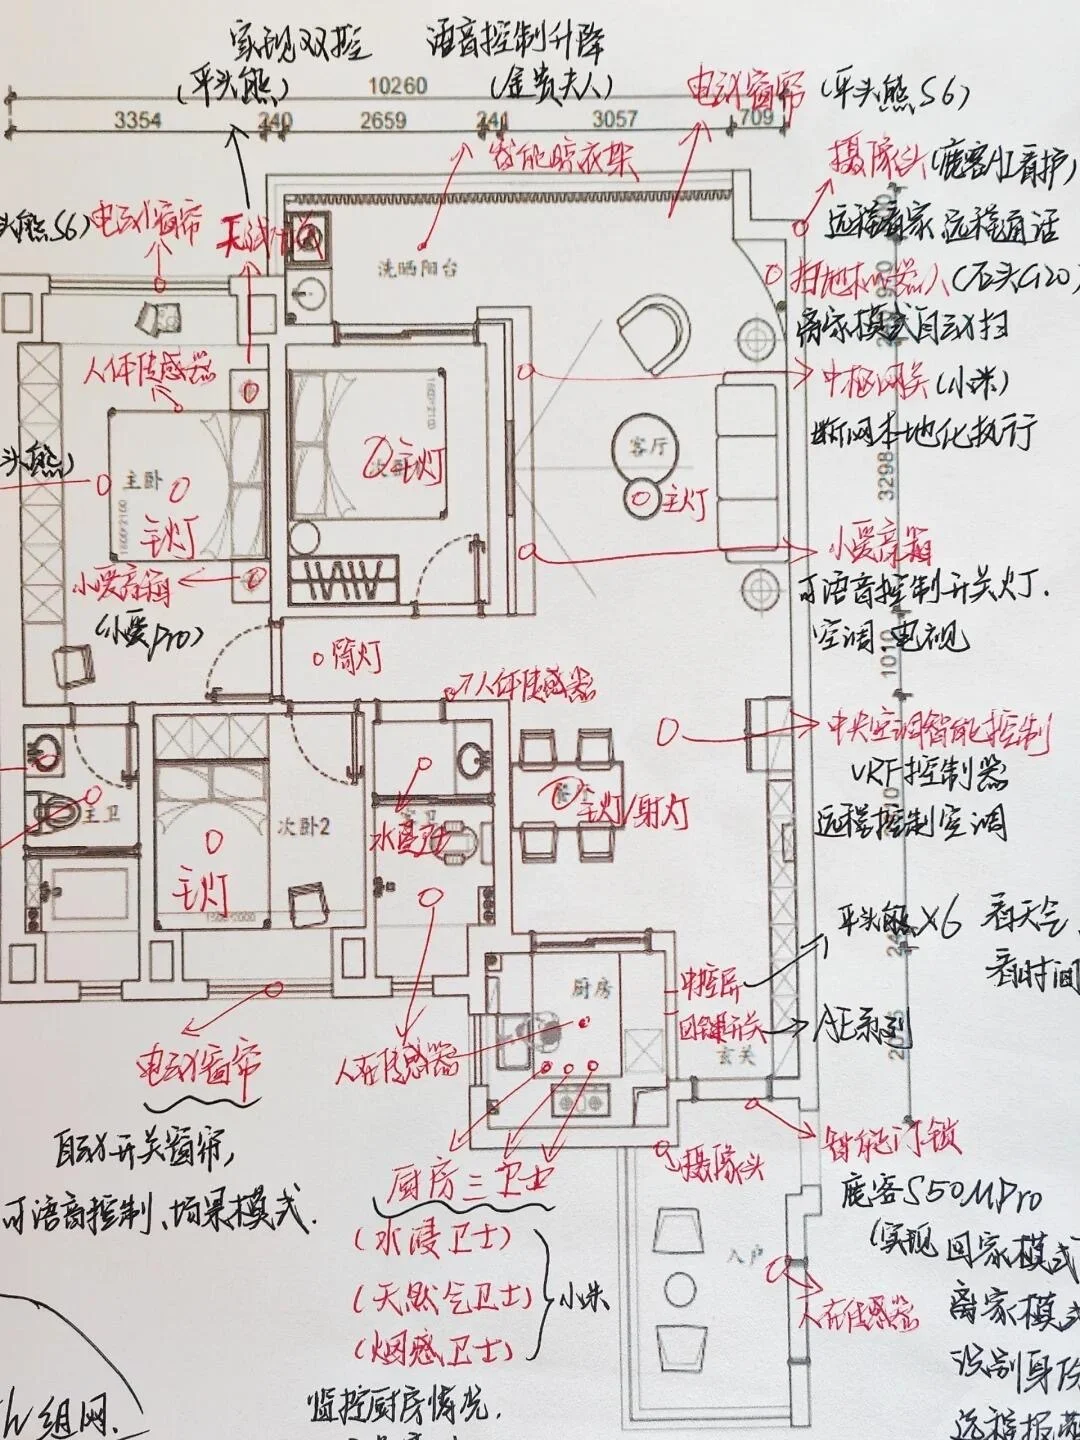 实现双控
语音控制升降
(平头熊)
10260
(金贵夫人)
电动窗帘
(平头熊S6)
3354
240
2659
241
3057
709
智能晾衣架
摄像头(鹿客AI看护)
远程看家、远程通话
头熊S6)
电动窗帘
无线开关
洗晒阳台
扫地机器人(石头G20)
离家模式自动扫
人体传感器
中枢网关(小米)
断网本地化执行
1800*2100
客厅
主灯
主灯
3298
头熊)
主卧
主灯
1800*2100
小爱音箱
(小爱Pro)
小爱音箱
可语音控制开关灯.
空调.电视
1010
筒灯
人体传感器
中央空调智能控制
VRF控制器
远程控制空调
主卫
次卧2
水浸卫士
主灯/射灯
主灯
平头熊X6
看天气、
看时间
厨房
中控屏
四键开关
AE系列
玄关
电动窗帘
人在传感器
自动开关窗帘,
可语音控制、场景模式.
厨房三卫士
摄像头
智能门锁
鹿客S50M Pro
(实现回家模式
(水浸卫士)
(天然气卫士)
(烟感卫士)
小米
入户
人在传感器
离家模式
识别身份
远程报警
监控厨房情况.
组网.